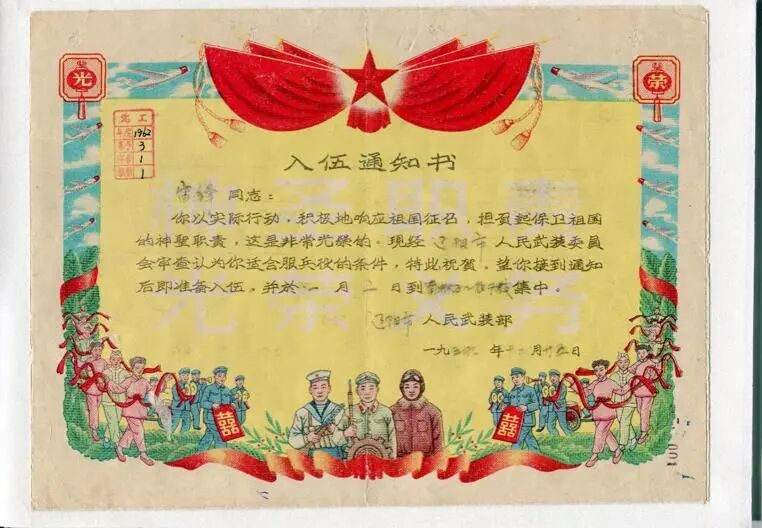 光
荣
北工
年度 1962
3
1
1
入伍通知书
同志:
你以实际行动,积极地响应祖国征召,担负起保卫祖国
的神聖职责,这是非常光荣的。现经 辽阳市 人民武装委員
会审查认为你适合服兵役的条件,特此祝贺。望你接到通知
后即准备入伍,并於 一 月 二 日到 集中。
辽阳市 人民武装部
一九 年十二月 日
囍
囍
001